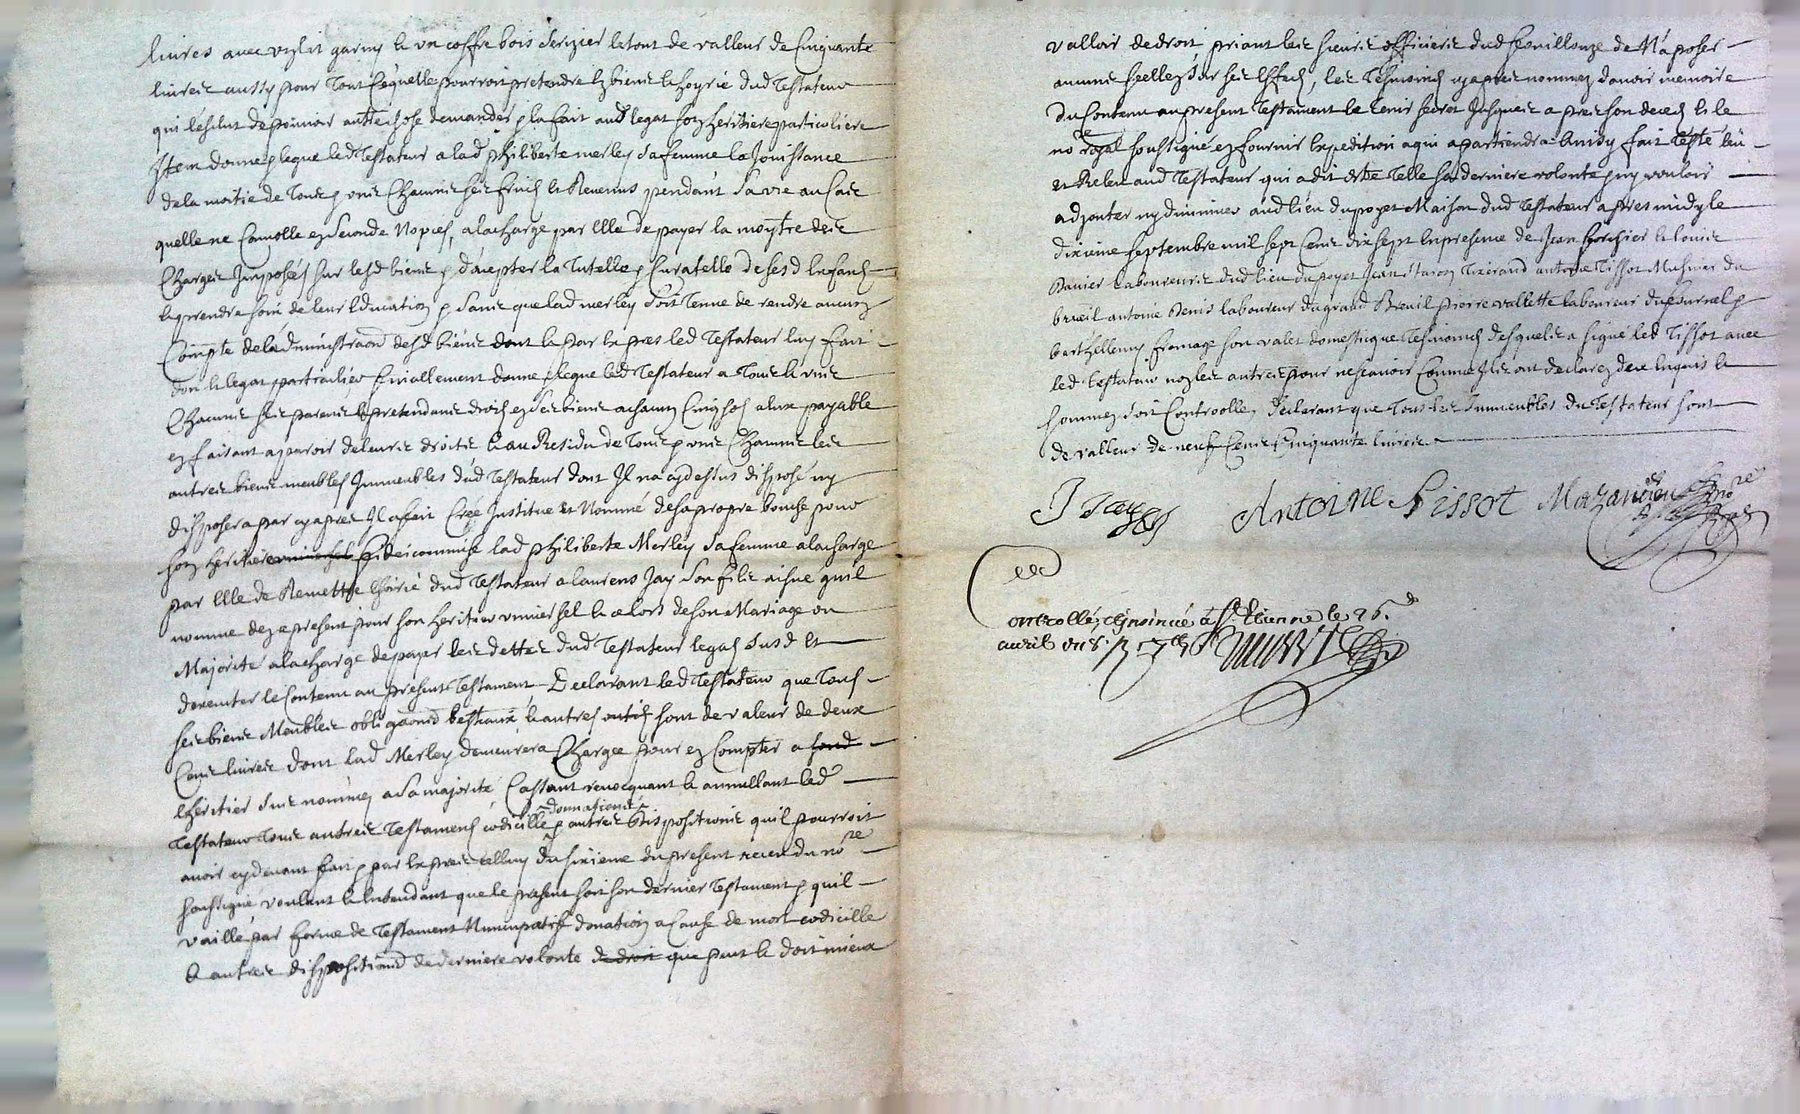 livres avec un lit garny & un coffre bois serizier le tout de valleur de Cinquante
livres aussy pour tout ce quelle pourroit pretendre es biens & hoyrie dud testateur
qui lesclut de pouvoir autre chose demander & la fait aud legat son heritiere particuliere
Item donne & legue led testateur a lad philiberte merley sa femme la Jouissance
de la moitie de tous & uns Chacuns ses fruits & Revenus pendant sa vie au Cas
quelle ne Convolle en seconde Nopces, a la charge par Elle de payer la moytié des
Charges Imposées sur lesd biens & daccepter la Tutelle & Curatelle de sesd Enfans
& prendre soin de leur Education & sans que lad merley soit tenue de rendre aucun
Compte de lad ministraon desd biens dont & par Expres led Testateur luy fait
don & legat particulier finallement donne & legue led Testateur a Tous & uns
Chacuns ses parens & pretendans droits en ses biens a chacun Cinq sols a Eux payable
en faisant aparoir de leurs droits & au Residu de Tous & uns Chacuns les
autres biens meubles Immeubles dud Testateur dont Il na cy dessus disposé ny
disposera par cy apres Il a fait Créé Institue et Nommé de sa propre bouche pour
son heritiere universel fideicommise lad philiberte Merley sa femme a la charge
par Elle de Remettre lhoirié dud Testateur a laurens Jay son fils aisné quil
nomme dez a present pour son heritier universel & a lors de son Mariage ou
Majorité a la charge de payer les dettes dud Testateur legats susd et
dexecuter le Contenu au present Testament Declarant led Testateur que Tous
ses biens Meubles obligaons bestiaux & autres outils sont de valeur de deux
Cens livres dont lad Merley demeurera Chargee pour en Compter a fond
lheritier sus nommez a sa majorité Cassant revocquant & annullant led
donnations
Testateur tous autres Testamens codicille & autres dispositions quil pourroit
avoir cy devant fait & par Expres celluy du sixieme du present receu du nore
soussigné voulant & Entendant que le present soit son dernier Testament & quil
vaille par forme de Testament Nuncupatif donation a Cause de mort codicille
& autres dispositions de derniere volonte de droit que peut & doit mieux
valloir de droit priant les sieurs officiers dud feuillouze de Naposer
aucuns scellez sur ses Effects, les Tesmoins cy apres nommez davoir memoire
du Contenu au present Testament le Tenir secret Jusques apres son deced & le
nore royal soussigné en fournir Expedition a qui apartiendra Ainsy fait Testé leu
et Releu aud Testateur qui a dit estre Telle sa derniere volonte & ny vouloir
adjouter ny diminuer aud lieu du poyet Maison dud Testateur apres midy le
dixieme septembre mil sept Cens dix sept En presence de Jean forchier & louis
Panier laboureurs dud lieu du poyet Jean Tixerand antoine Tissot Musnier du
brueil antoine Denis laboureur du grand Breuil pierre vallette laboureur du fournel &
barthellemy fromage son valet domestique Tesmoins desquels a signé led Tissot avec
led testateur non les autres pour ne scavoir Comme Ils ont declarez de ce Enquis &
sommez soit Controllé, Declarant que tous les Immeubles du Testateur sont
de valleur de neuf Cens Cinquante livres
J Jay Antoine Tissot Mazancieu nore
Royal
Controllé, & Insinué a St. Etienne le 26.e
avril 1718.